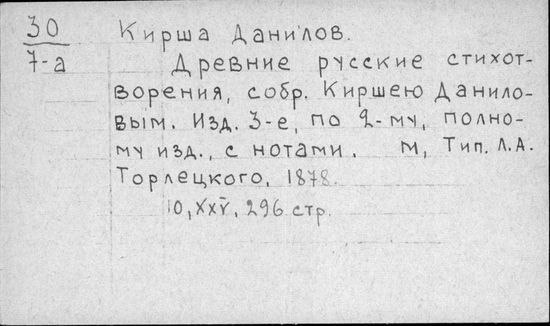 30 Кирша Данилов.
7-а Древние русские стихот-
ворения, собр. Киршею Данило-
вым. Изд. 3-е, по 2-му, полно-
му изд., с нотами. М, Тип. Л.А.
Торлецкого, 1878.
10, XXV, 296 стр.